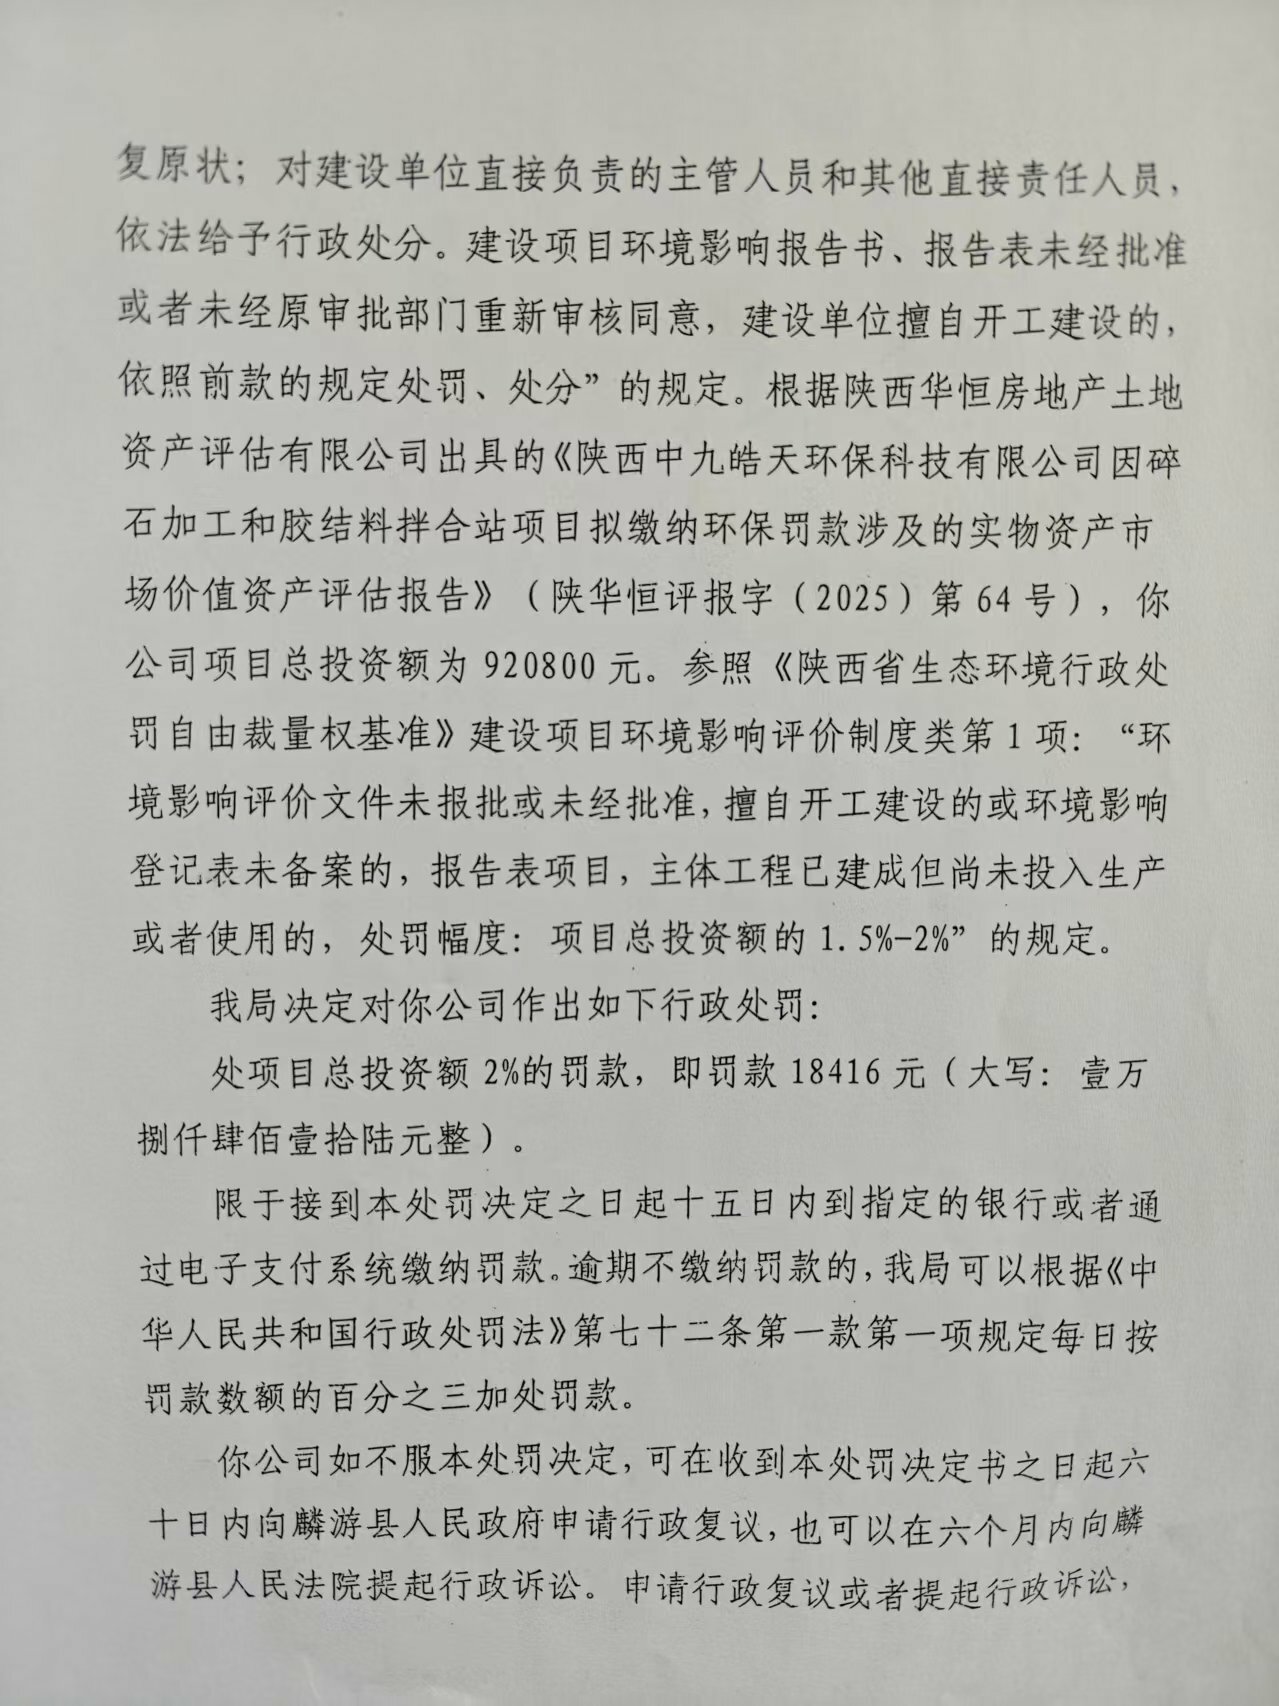 复原状；对建设单位直接负责的主管人员和其他直接责任人员，
依法给予行政处分。建设项目环境影响报告书、报告表未经批准
或者未经原审批部门重新审核同意，建设单位擅自开工建设的，
依照前款的规定处罚、处分”的规定。根据陕西华恒房地产土地
资产评估有限公司出具的《陕西中九皓天环保科技有限公司因碎
石加工和胶结料拌合站项目拟缴纳环保罚款涉及的实物资产市
场价值资产评估报告》（陕华恒评报字（2025）第64号），你
公司项目总投资额为920800元。参照《陕西省生态环境行政处
罚自由裁量权基准》建设项目环境影响评价制度类第1项：“环
境影响评价文件未报批或未经批准，擅自开工建设的或环境影响
登记表未备案的，报告表项目，主体工程已建成但尚未投入生产
或者使用的，处罚幅度：项目总投资额的1.5%-2%”的规定。
我局决定对你公司作出如下行政处罚：
处项目总投资额2%的罚款，即罚款18416元（大写：壹万
捌仟肆佰壹拾陆元整）。
限于接到本处罚决定之日起十五日内到指定的银行或者通
过电子支付系统缴纳罚款。逾期不缴纳罚款的，我局可以根据《中
华人民共和国行政处罚法》第七十二条第一款第一项规定每日按
罚款数额的百分之三加处罚款。
你公司如不服本处罚决定，可在收到本处罚决定书之日起六
十日内向麟游县人民政府申请行政复议，也可以在六个月内向麟
游县人民法院提起行政诉讼。申请行政复议或者提起行政诉讼，